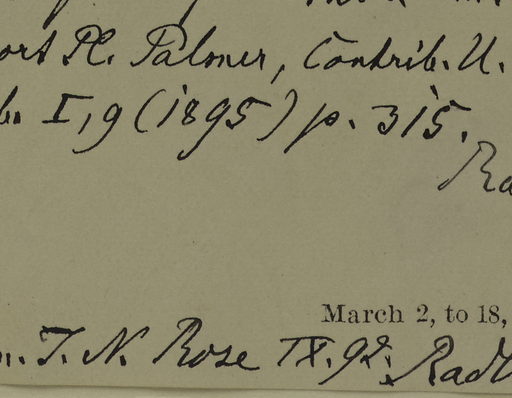 ort Pl. Palmer, Contrib. U.
b. I, 9 (1895) p. 315.
Ra
March 2, to 18,
n. T. N. Rose IX. 92. Radl